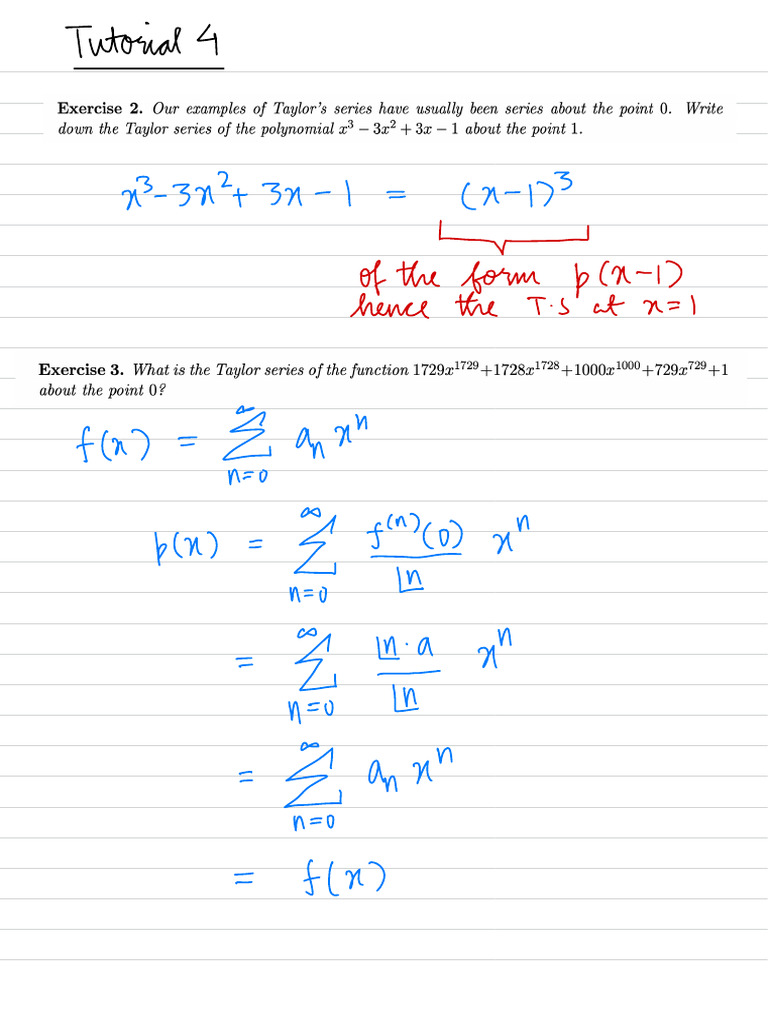 Tutorial 4
Exercise 2. Our examples of Taylor's series have usually been series about the point 0. Write
down the Taylor series of the polynomial x³ − 3x² + 3x − 1 about the point 1.
x³ − 3x² + 3x − 1 = (x−1)³
of the form p(x−1)
hence the T.S at x=1
Exercise 3. What is the Taylor series of the function 1729x¹⁷²⁹+1728x¹⁷²⁸+1000x¹⁰⁰⁰+729x⁷²⁹+1
about the point 0?
f(x) = ∑_{n=0}^{∞} aₙ xⁿ
p(x) = ∑_{n=0}^{∞} f⁽ⁿ⁾(0)/|n xⁿ
= ∑_{n=0}^{∞} |n · a/|n xⁿ
= ∑_{n=0}^{∞} aₙ xⁿ
= f(x)